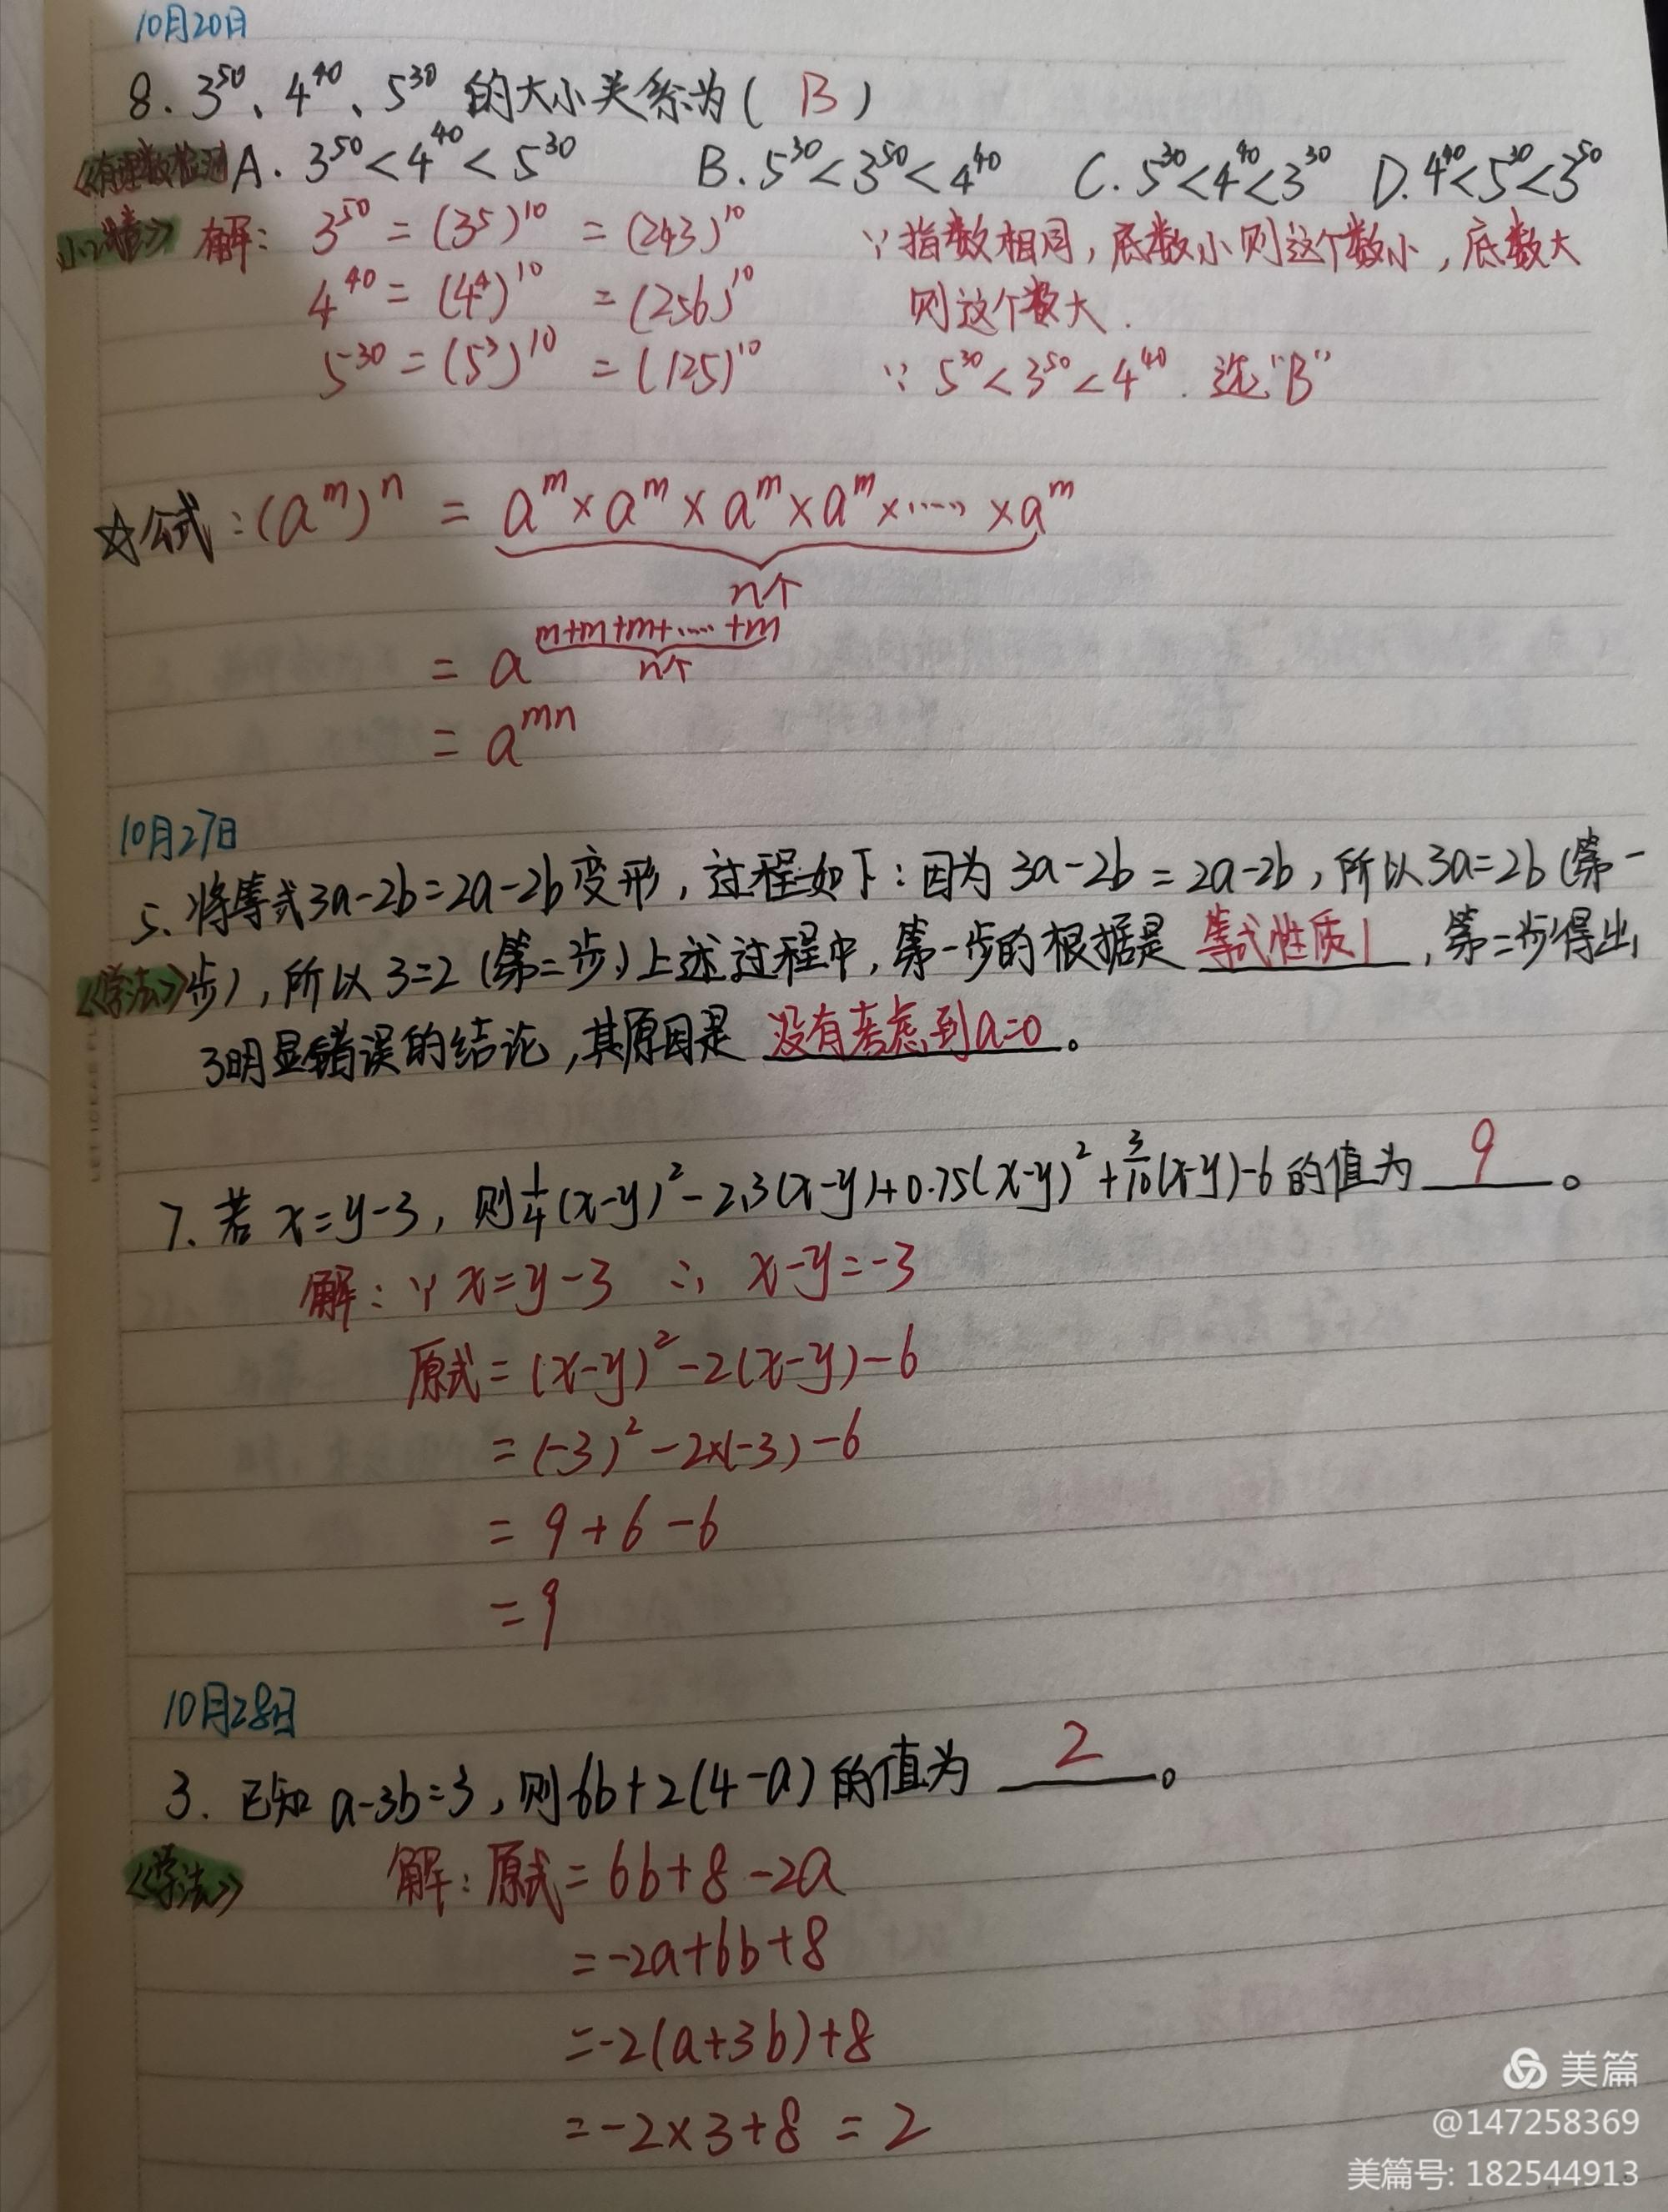 10月20日
8. 3⁵⁰、4⁴⁰、5³⁰ 的大小关系为( B )
《有理数检测 A. 3⁵⁰<4⁴⁰<5³⁰ B. 5³⁰<3⁵⁰<4⁴⁰ C. 5³⁰<4⁴⁰<3³⁰ D. 4⁴⁰<5³⁰<3⁵⁰
解: 3⁵⁰ = (3⁵)¹⁰ = (243)¹⁰ ∵指数相同,底数小则这个数小,底数大
4⁴⁰ = (4⁴)¹⁰ = (256)¹⁰ 则这个数大.
5³⁰ = (5³)¹⁰ = (125)¹⁰ ∵ 5³⁰<3⁵⁰<4⁴⁰. 选"B"
☆公式:(aᵐ)ⁿ = aᵐ×aᵐ×aᵐ×aᵐ×……×aᵐ
n个
= a^m+m+m+……+m
n个
= a^mn
10月27日
5、将等式3a-2b=2a-2b变形,过程如下:因为3a-2b=2a-2b,所以3a=2b(第一
《学法》步),所以3=2(第二步)上述过程中,第一步的根据是 等式性质1,第二步得出
了明显错误的结论,其原因是 没有考虑到a=0。
7. 若x=y-3,则1/4(x-y)²-2.3(x-y)+0.75(x-y)²+3/10(x-y)-6的值为 9 。
解:∵x=y-3 ∴ x-y=-3
原式=(x-y)²-2(x-y)-6
=(-3)²-2×(-3)-6
=9+6-6
=9
10月28日
3. 已知a-3b=3,则6b+2(4-a)的值为 2 。
《学法》 解:原式=6b+8-2a
=-2a+6b+8
=-2(a+3b)+8
=-2×3+8=2
美篇
@147258369
美篇号: 182544913